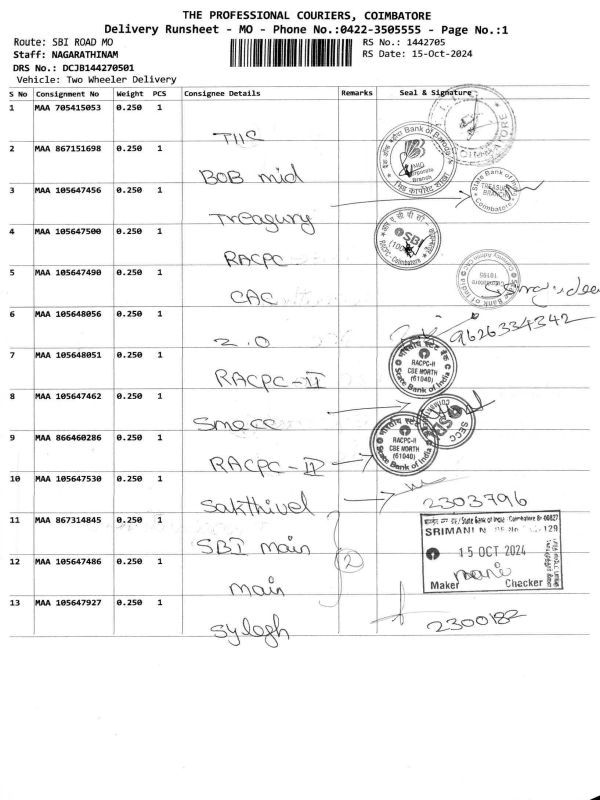 THE PROFESSIONAL COURIERS, COIMBATORE
Delivery Runsheet - MO - Phone No.:0422-3505555 - Page No.:1
Route: SBI ROAD MO RS No.: 1442705
Staff: NAGARATHINAM RS Date: 15-Oct-2024
DRS No.: DCJB144270501
Vehicle: Two Wheeler Delivery
S No Consignment No Weight PCS Consignee Details Remarks Seal & Signature
1 MAA 705415053 0.250 1
TIIC
2 MAA 867151698 0.250 1
BOB mid
Bank of Baroda
Corporate
Branch
3 MAA 105647456 0.250 1
Treagury
State Bank of
TREASURY
BRANCH
Coimbatore
4 MAA 105647500 0.250 1
RACPC
SBI
RACPC - Coimbatore
5 MAA 105647490 0.250 1
CAC
Currency Admn
State Bank of India
6 MAA 105648056 0.250 1
2.0
9626334342
7 MAA 105648051 0.250 1
RACPC-II
भारतीय स्टेट बैंक
RACPC-II
CBE NORTH
(61040)
State Bank of India
8 MAA 105647462 0.250 1
Smecc
SBI
SECC
9 MAA 866460286 0.250 1
RACPC-II
RACPC-II
CBE NORTH
(61040)
State Bank of India
10 MAA 105647530 0.250 1
Sakthivel
2303796
11 MAA 867314845 0.250 1
SBI main
State Bank of India Coimbatore Br-00827
SRIMANI N
15 OCT 2024
Mani
Maker Checker
12 MAA 105647486 0.250 1
main
2
13 MAA 105647927 0.250 1
Sylegh
2300182